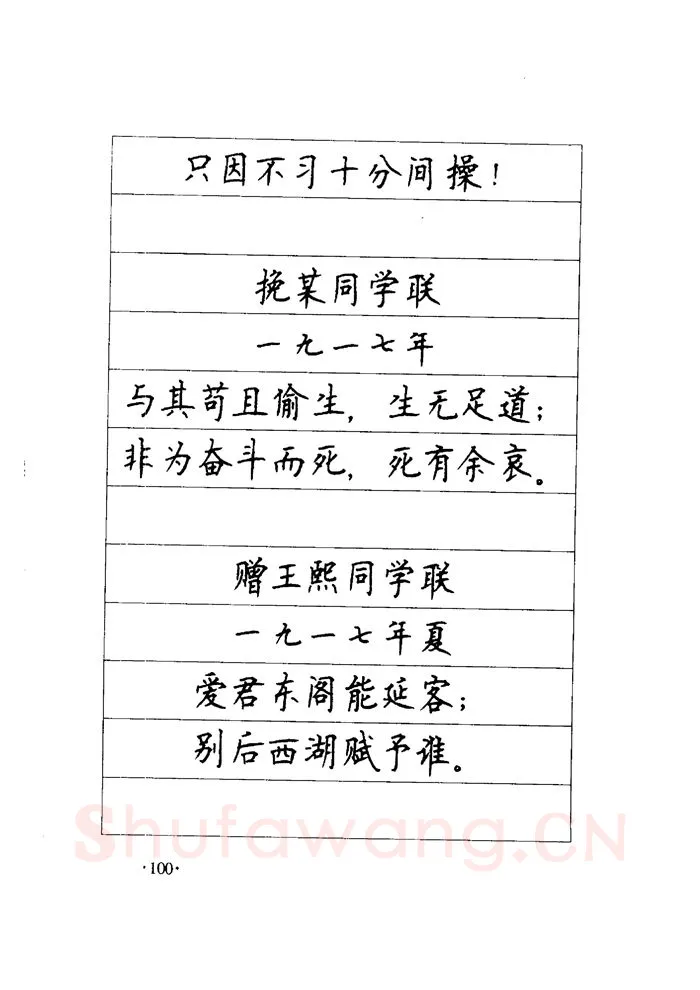 只因不习十分间操！
挽某同学联
一九一七年
与其苟且偷生，生无足道；
非为奋斗而死，死有余哀。
赠王熙同学联
一九一七年夏
爱君东阁能延客；
别后西湖赋予谁。
Shufawang.CN
·100·